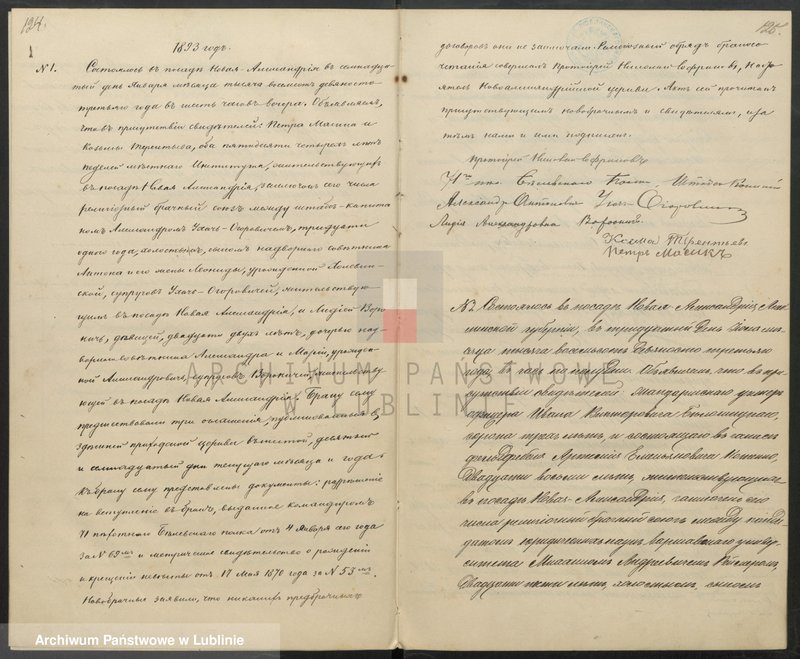 124.
1893 годъ.
1
N 1. Состоялось въ посадѣ Новая-Александрія въ семнадца-
тый день Января мѣсяца тысяча восемьсотъ девяносто
третьяго года въ шесть часовъ вечера. Объявляемъ,
что въ присутствіи свидѣтелей: Петра Масика и
Козьмы Терентьева, оба пятидесяти четырехъ лѣтъ
мѣстнаго Института, жительствующихъ
въ посадѣ Новая Александрія, заключенъ сего числа
религіозный брачный союзъ между штабсъ-капита-
номъ Александромъ Ухачъ-Огоровичемъ, тридцати
одного года, холостымъ, сыномъ надворнаго совѣтника
Антона и его жены Леониды, урожденной
ской, супруговъ Ухачъ-Огоровичей, жительствую-
щимъ въ посадѣ Новая Александрія, и Лидіею Воро-
ничъ, дѣвицей, двадцати двухъ лѣтъ, дочерью над-
ворнаго совѣтника Александра и Маріи, урожден-
ной Александровичъ, супруговъ Вороничей, жительству-
ющей въ посадѣ Новая Александрія. Браку сему
предшествовали три оглашенія, публикованныя въ
здѣшней приходской церкви въ шестой, десятый
и семнадцатый дни текущего мѣсяца и года.
Къ браку сему представлены документы: разрѣшеніе
на вступленіе въ бракъ, выданное командиромъ
71 пѣхотнаго Бѣлевскаго полка отъ 4 Января сего года
за N 69 и метрическое свидѣтельство о рожденіи
и крещеніи невѣсты отъ 17 Мая 1870 года за N 53.
Новобрачные заявили, что никакихъ предбрачныхъ
125.
договоровъ они не заключали. Религіозный обрядъ брако-
сочетанія совершалъ Протоіерей Насто-
ятель Новоалександрійской церкви. Актъ сей прочитанъ
присутствующимъ новобрачнымъ и свидѣтелямъ, и за
тѣмъ нами и ими подписанъ.
Протоіерей
71го пѣх. Бѣлевскаго Полка, Штабсъ-Капитанъ
Александръ Антоновичъ Ухачъ-Огоровичъ
Лидія Александровна Вороничъ
Козма Терентьевъ
Петръ Масикъ
N 2. Состоялось въ посадѣ Новая Александрія, Люб-
линской губерніи, въ тридцатый день
тысяча восемьсотъ девяносто третьяго
года, въ часъ по полудни. Объявляемъ, что въ при-
сутствіи свидѣтелей:
Ивана Викторовича
лѣтъ, и состоящаго въ запасѣ
Артемія
двадцати восьми лѣтъ, жительствующихъ
въ посадѣ Новая-Александрія, заключенъ сего
числа религіозный брачный союзъ между канди-
датомъ юридическихъ наукъ Варшавскаго универ-
ситета Михаиломъ Андреевичемъ
двадцати лѣтъ, холостымъ, сыномъ
ARCHIWUM PAŃSTWOWE
W LUBLINIE
Archiwum Państwowe w Lublinie